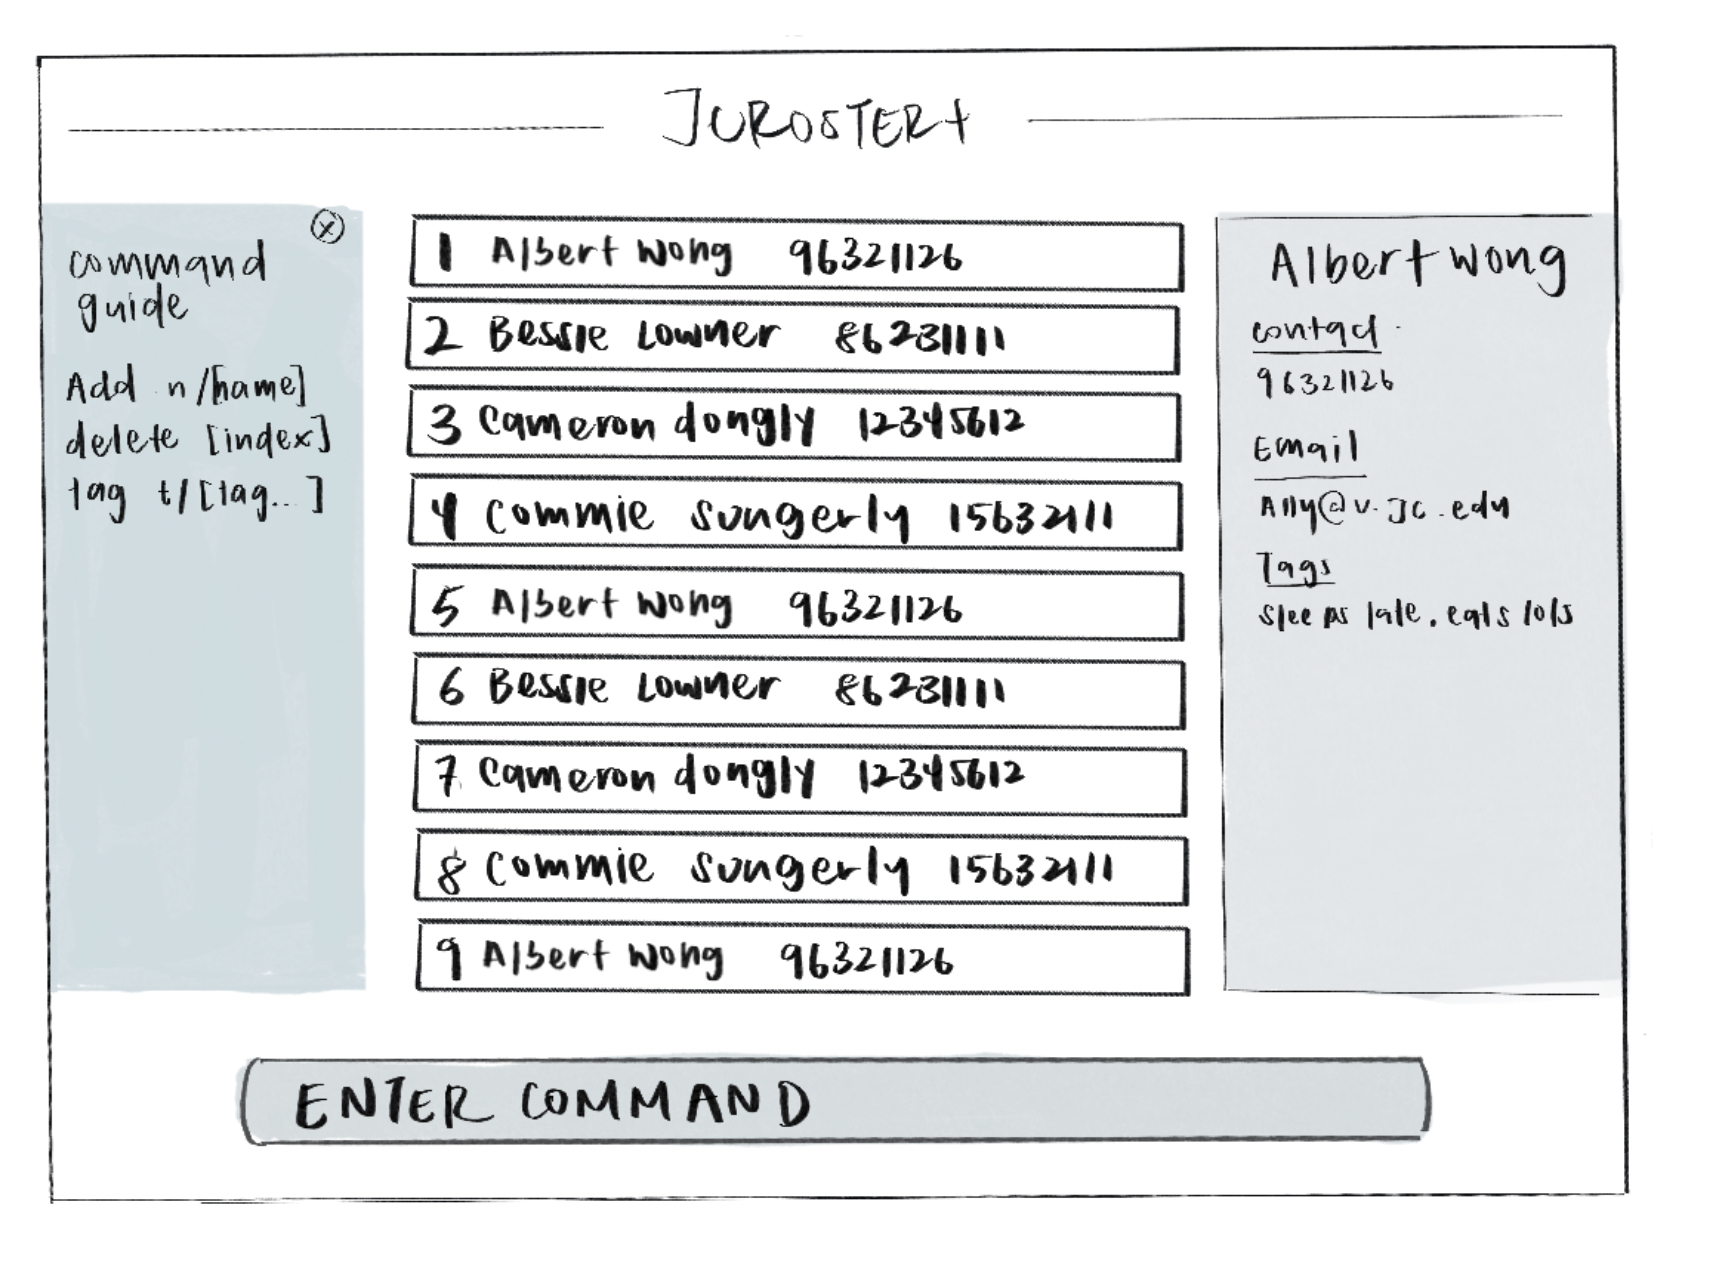 JCROSTER+
command
guide
Add n/[name]
delete [index]
tag t/[tag...]
1 Albert Wong 96321126
2 Bessie Lowner 86231111
3 Cameron dongly 12345612
4 Commie sungerly 15632111
5 Albert Wong 96321126
6 Bessie Lowner 86231111
7 Cameron dongly 12345612
8 Commie sungerly 15632111
9 Albert Wong 96321126
Albert Wong
contact
96321126
Email
Ally@v.jc.edu
Tags
sleeps late. eats lots
ENTER COMMAND